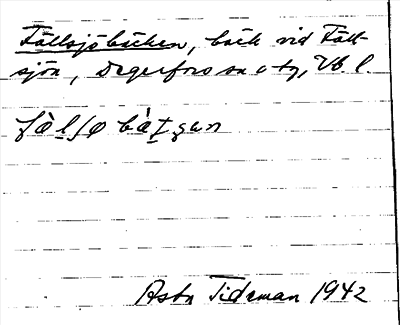 Fällsjöbäcken, bäck vid Fäll-
sjön, Degerfors sn o tg, Vb. l.
fàlʃø bàtʃan
Asta Tideman 1942